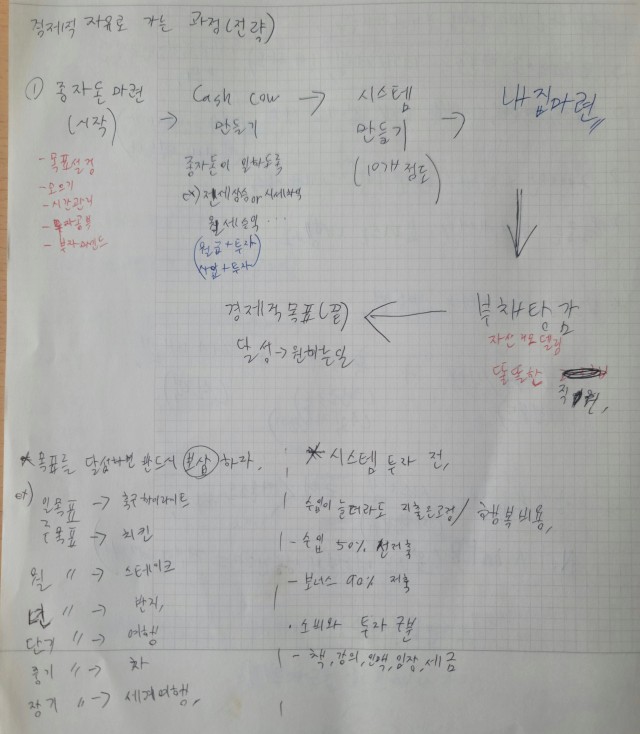 경제적 자유로 가는 과정(전략)
① 종자돈 마련 → Cash cow → 시스템 → 내집마련
(시작) 만들기 만들기
(10개 정도)
- 목표설정
- 시간관리
- 부자마인드
종자돈이 일하도록
ex) 전세상승 or 시세차익
월세수익 ...
(월급 + 투자
사업 + 투자)
부채탕감
자산 리모델링
똘똘한
직원,
경제적 목표(끝)
달성 → 원하는일
* 목표를 달성하면 반드시 보상 하자.
ex) 일목표 → 축구하이라이트
주목표 → 치킨
월 〃 → 스테이크
년 〃 → 반지,
단기 〃 → 여행
중기 〃 → 차
장기 〃 → 세계여행,
* 시스템 투자 전,
수입이 늘더라도 지출은고정/ 행복비용,
- 수입 50% 선저축
- 보너스 90% 저축
· 소비와 투자 구분
- 책, 강의, 인맥, 임장, 세금